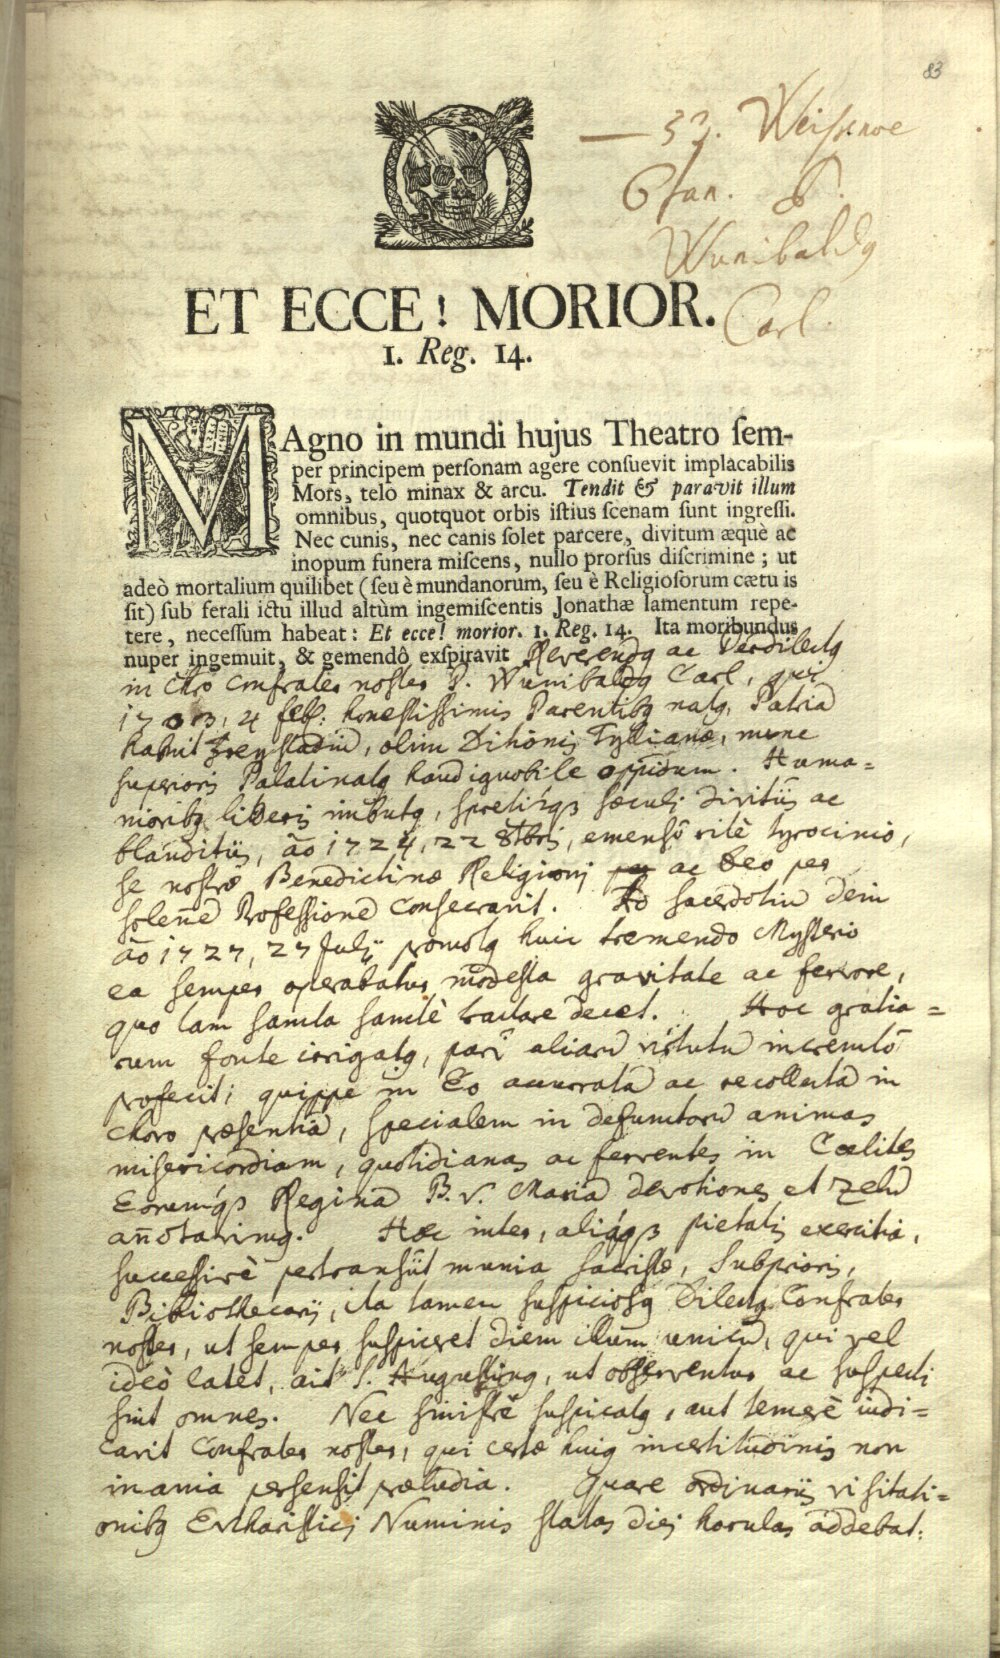 83
— 33. Weissenoe
6 Jan. P.
Wunibaldq
Carl.
ET ECCE! MORIOR.
1. Reg. 14.
MAgno in mundi hujus Theatro ſem-
per principem perſonam agere conſuevit implacabilis
Mors, telo minax & arcu. Tendit & paravit illum
omnibus, quotquot orbis iſtius ſcenam ſunt ingreſſi.
Nec cunis, nec canis ſolet parcere, divitum æquè ac
inopum funera miſcens, nullo prorſus diſcrimine; ut
adeò mortalium quilibet (ſeu è mundanorum, ſeu è Religioſorum cætu is
ſit) ſub ferali ictu illud altùm ingemiſcentis Jonathæ lamentum repe-
tere, neceſſum habeat: Et ecce! morior. 1. Reg. 14. Ita moribundus
nuper ingemuit, & gemendô exſpiravit Reverendq ac Perdilectq
in Chro Confrater noster P. Wunibaldq Carl, qui
1703, 4 feb: honestissimis Parentibq natq, Patria
habuit Freystadiũ, olim Ditionis Tyllianæ, nunc
superioris Palatinatq haud ignobile oppidum. Huma=
nioribq literis imbutq, spretisq́ sæculi divitiis ac
blanditiis, ão 1724, 22 8tbris, emensô ritè tyrocinio,
se nostræ Benedictinæ Religioni ac Deo per
solenne Professione consecravit. Ad sacerdotiũ dein
ão 1727, 27 Julij promotq huic tremendo Mysterio
ea semper operabatur modesta gravitate ac fervore,
quo tam sancta sanctè tractare decet. Hoc gratia=
rum fonte irrigatq, pari aliarũ virtutũ incremtô
profecit; quippe in Eo accuratã ac recollectã in
choro præsentiã, specialem in defunctorũ animas
misericordiam, quotidianas ac ferventes in Cœlites
Eorumq́ Reginã B. V. Mariã devotiones et zelũ
annotavimq. Hæc inter, aliaq́ pietatis exercitia,
successivè pertransiit munia sacristæ, Subprioris,
Bibliothecarij, ita tamen suspiciosq Dilectq Confrater
noster, ut semper suspicaret diem illum unicũ, qui vel
ideò latet, ait S. Augustinq, ut observentur ac suspecti
sint omnes. Nec sinistrè suspicatq, aut temerè iudi=
cavit Confrater noster, qui certæ huiq incertitudinis non
inania persensit præludia. Quare ordinariis visitati=
onibq Eucharistici Numinis statas diei horulas addebat: